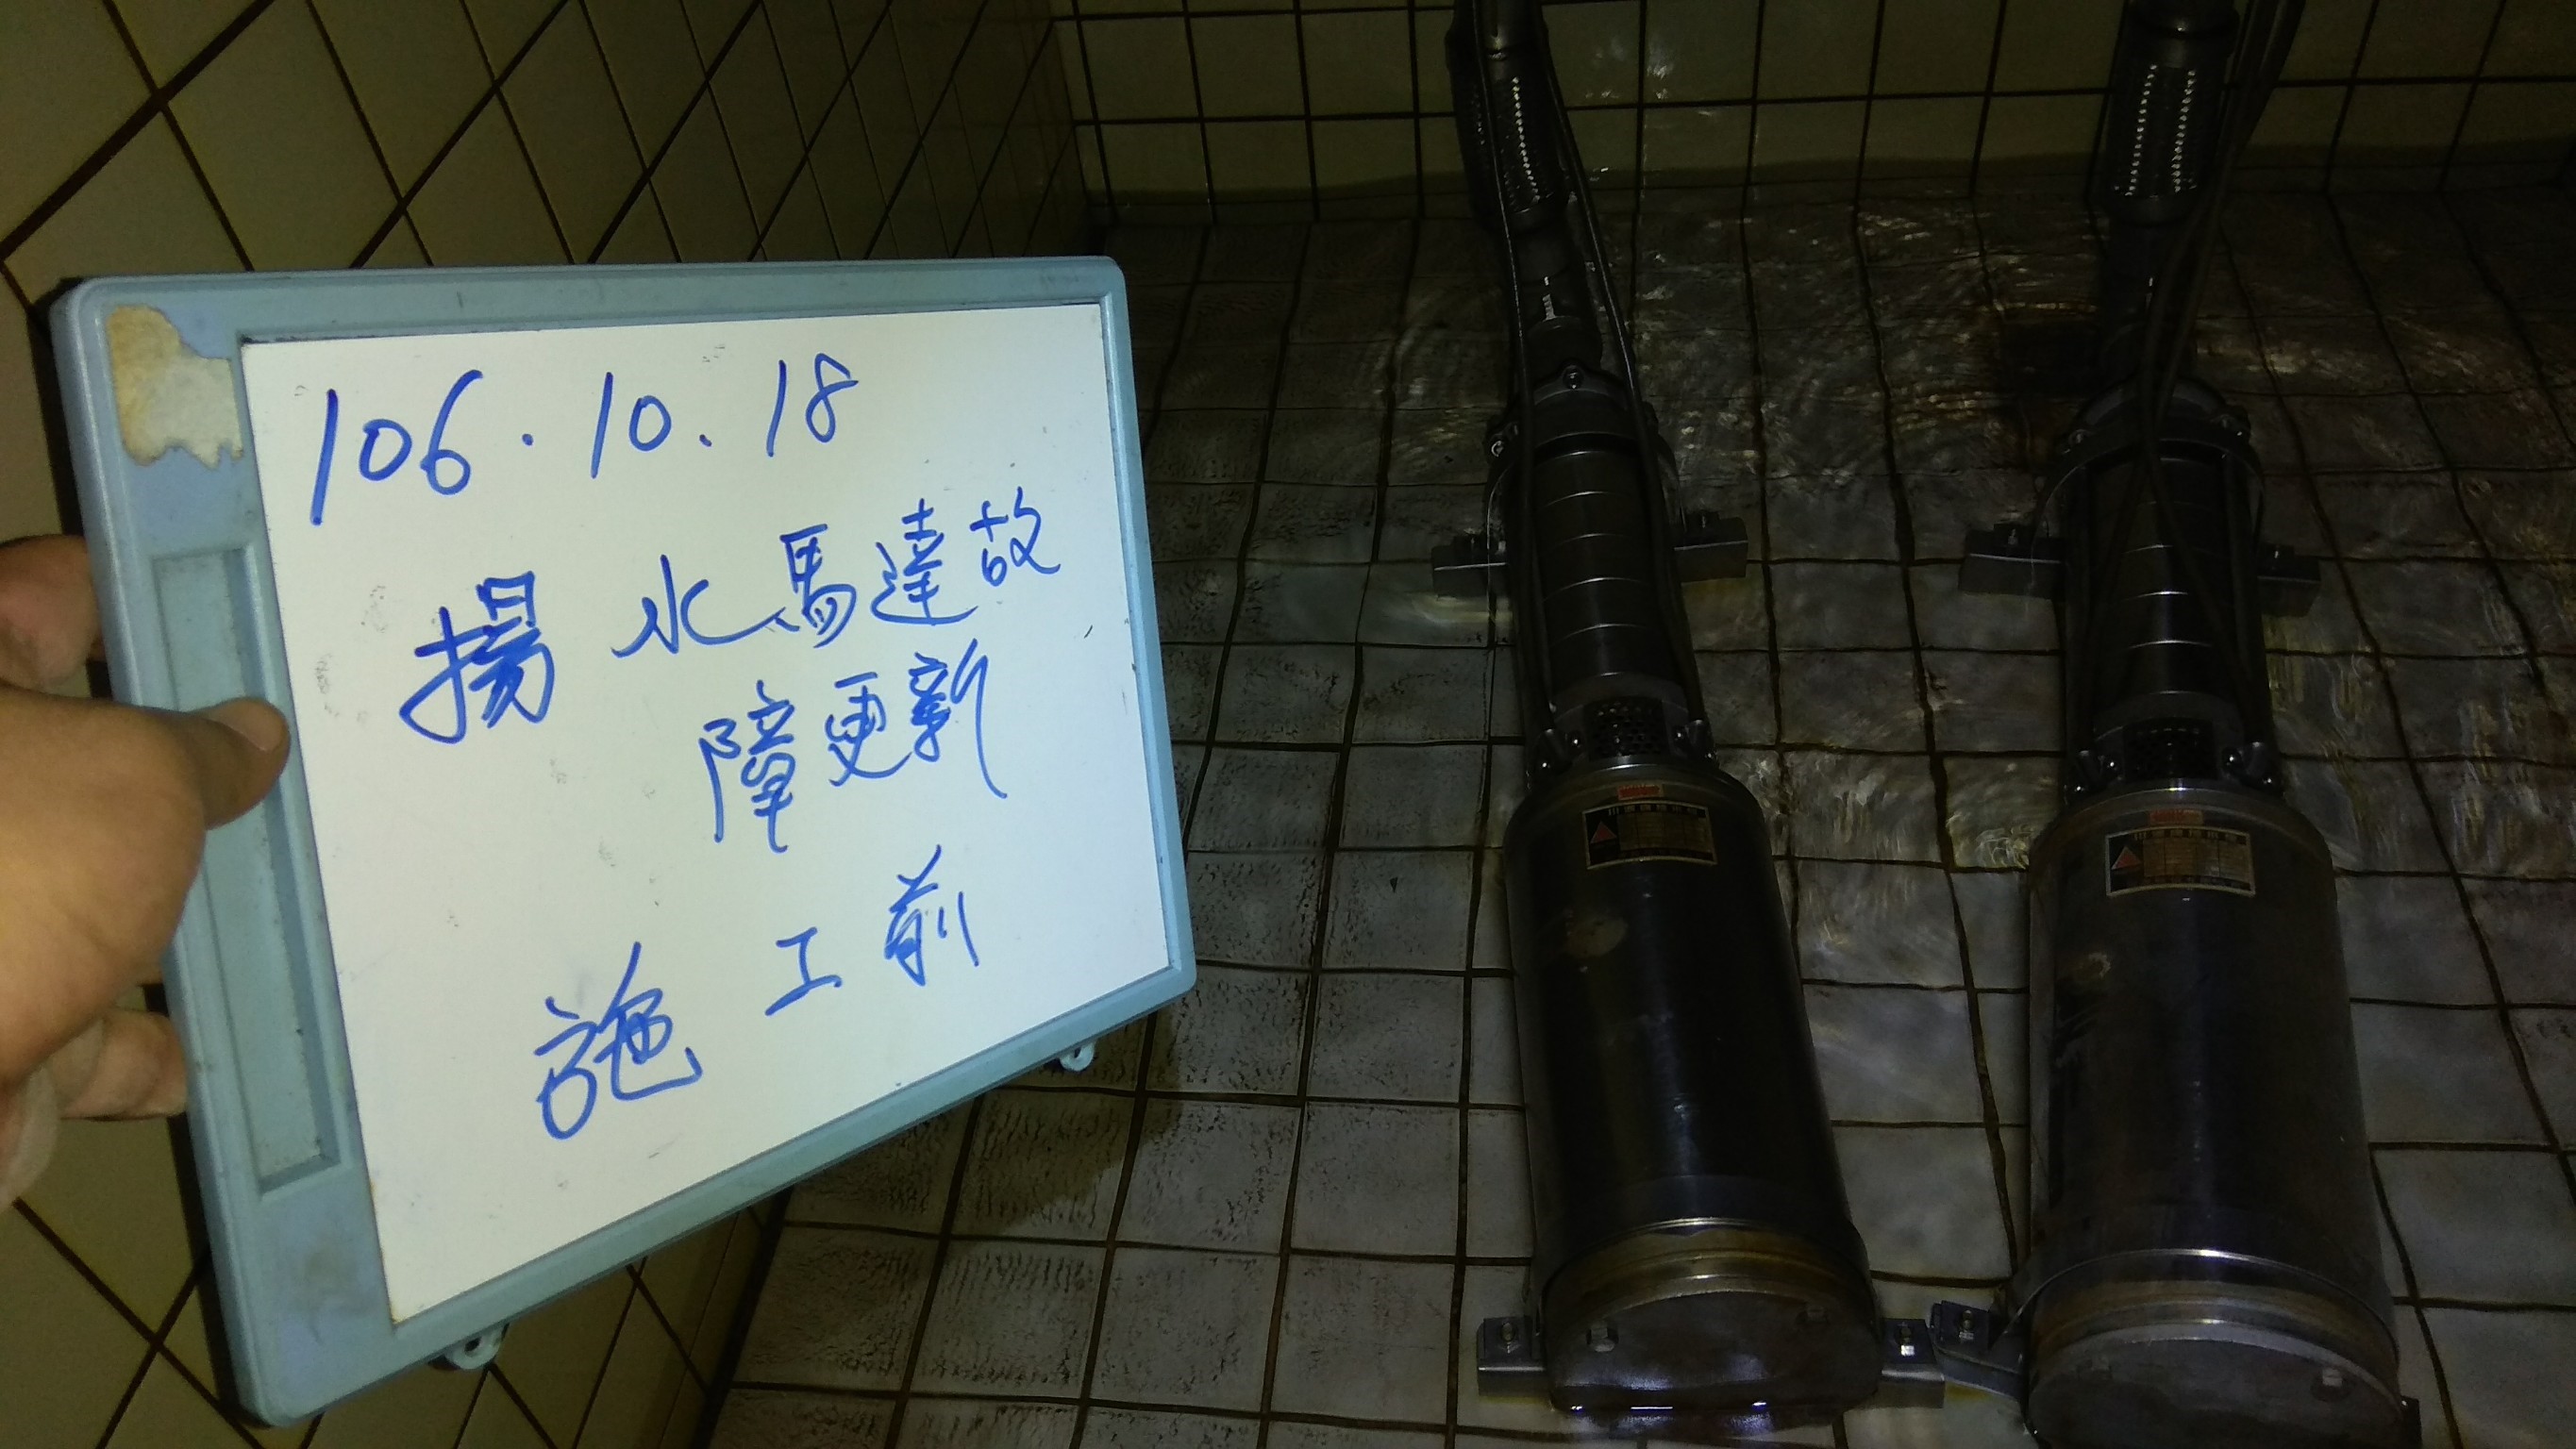 106.10.18
揚水馬達故
障更新
施工前